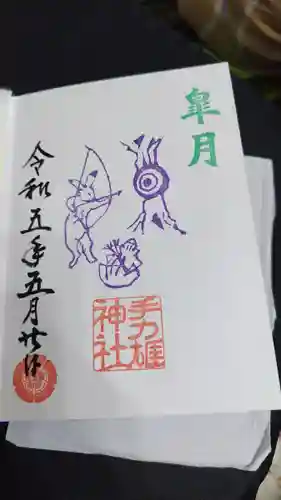 皐月
手力雄
神社
令和五年五月廿八日